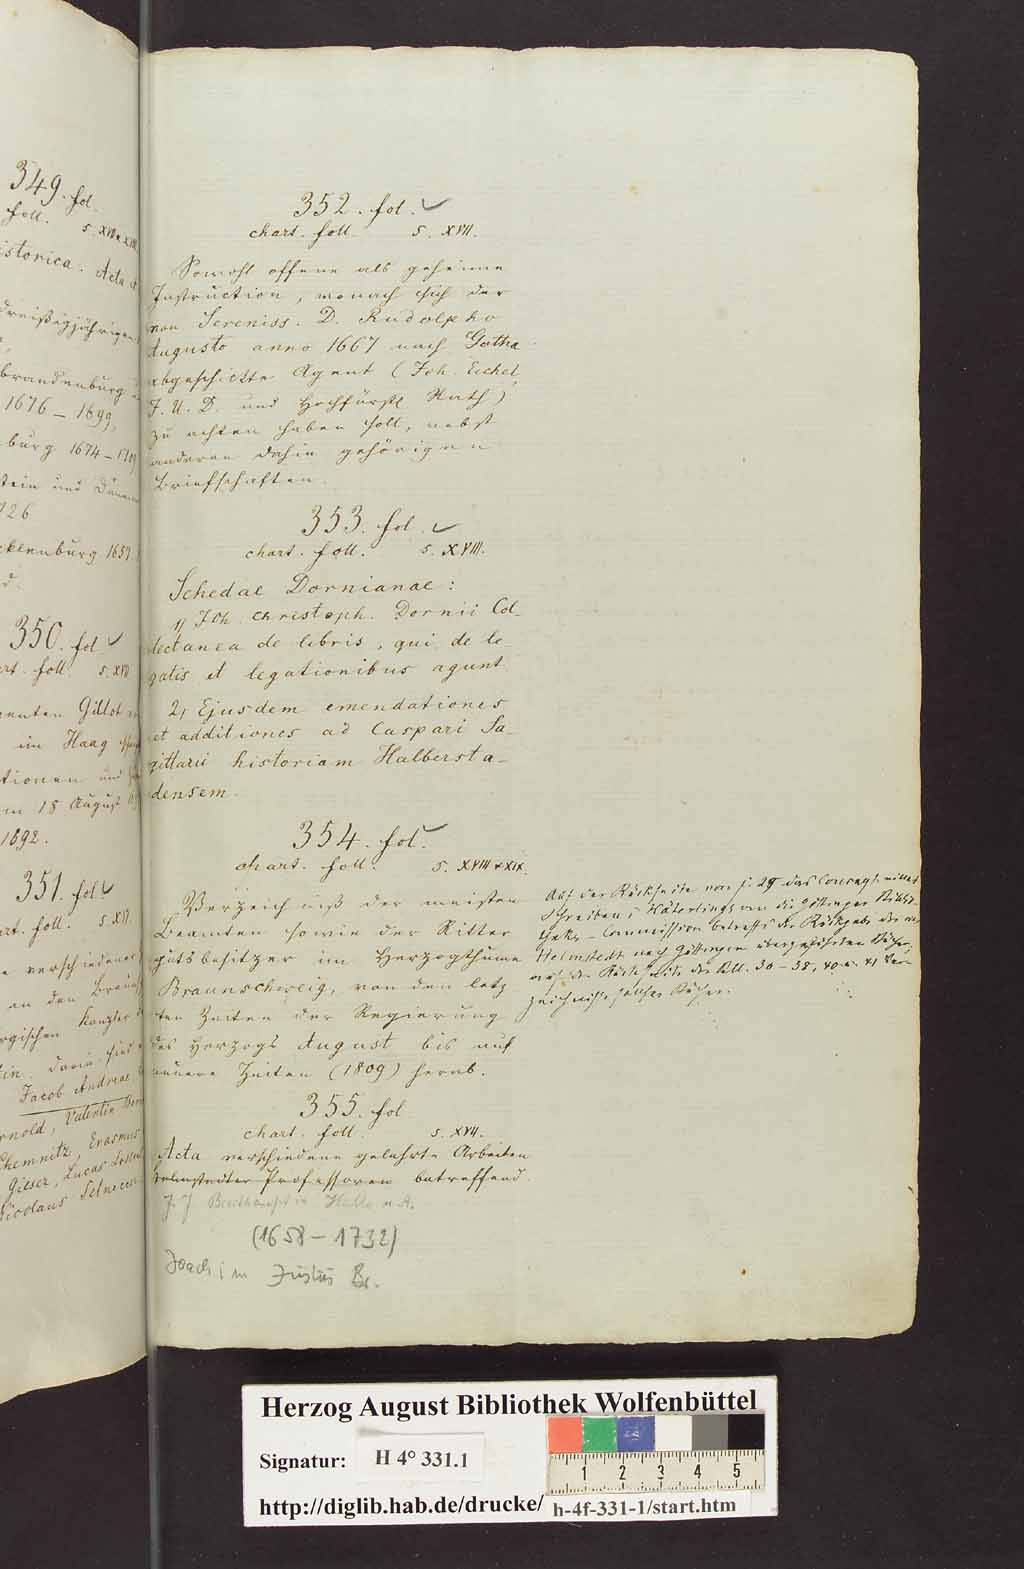 349. fol.
foll. s. XVII u. XVIII
istorica. Acta
dreißigjährigen
brandenburg
1676 – 1699,
burg 1674 – 1709
stein und Dänem
726
cklenburg 1659
d.
350. fol.
art. foll. s. XVII
enten Gillot
im Haag
tionen und
m 18 August
1692.
351. fol.
art. foll. s. XVI.
verschiedener
an den Braunsch
rgischen Kanzler
in. Darin sind
Jacob Andreae
rnold, Valentin
Chemnitz, Erasmus
Gieser, Lucas
Nicolaus Selneccer
352. fol.
chart. foll. s. XVII.
Sowohl offene als geheime
Instruction, wonach sich der
von Sereniss. D. Rudolpho
Augusto anno 1667 nach Gotha
abgeschickte Agent (Joh. Eichel,
J. U. D. und Hochfürstl. Rath)
zu achten haben soll, nebst
anderen dahin gehörigen
Briefschaften.
353. fol.
chart. foll. s. XVIII.
Schedae Dornianae:
1, Joh. Christoph. Dornii Col-
lectanea de libris, qui de le-
gatis et legationibus agunt
2, Ejusdem emendationes
et additiones ad Caspari Sa-
gittarii historiam Halbersta-
densem.
354. fol.
chart. foll. s. XVIII & XIX.
Verzeichniß der meisten
Beamten sowie der Ritter
gutsbesitzer im Herzogthume
Braunschweig, von den letz
ten Zeiten der Regierung
des Herzogs August bis auf
neuere Zeiten (1809) herab.
Auf der Rückseite von f. 29 das Concept eines
Schreibens Häberlings an die Göttinger Biblio-
theks-Commission betreffs der Rückgabe der von
Helmstedt nach Göttingen übergeführten Bücher,
auf der Rückseite der Bll. 30–38, 40 u. 41 Ver-
zeichnisse solcher Bücher.
355. fol
chart. foll. s. XVII.
Acta verschiedene gelehrte Arbeiten
helmstedter Professoren betreffend.
J. J. Breithaupt in Halle u. A.
(1658 – 1732)
Joachim Justus Br.
Herzog August Bibliothek Wolfenbüttel
Signatur: H 4° 331.1
1 2 3 4 5
http://diglib.hab.de/drucke/ h-4f-331-1/start.htm